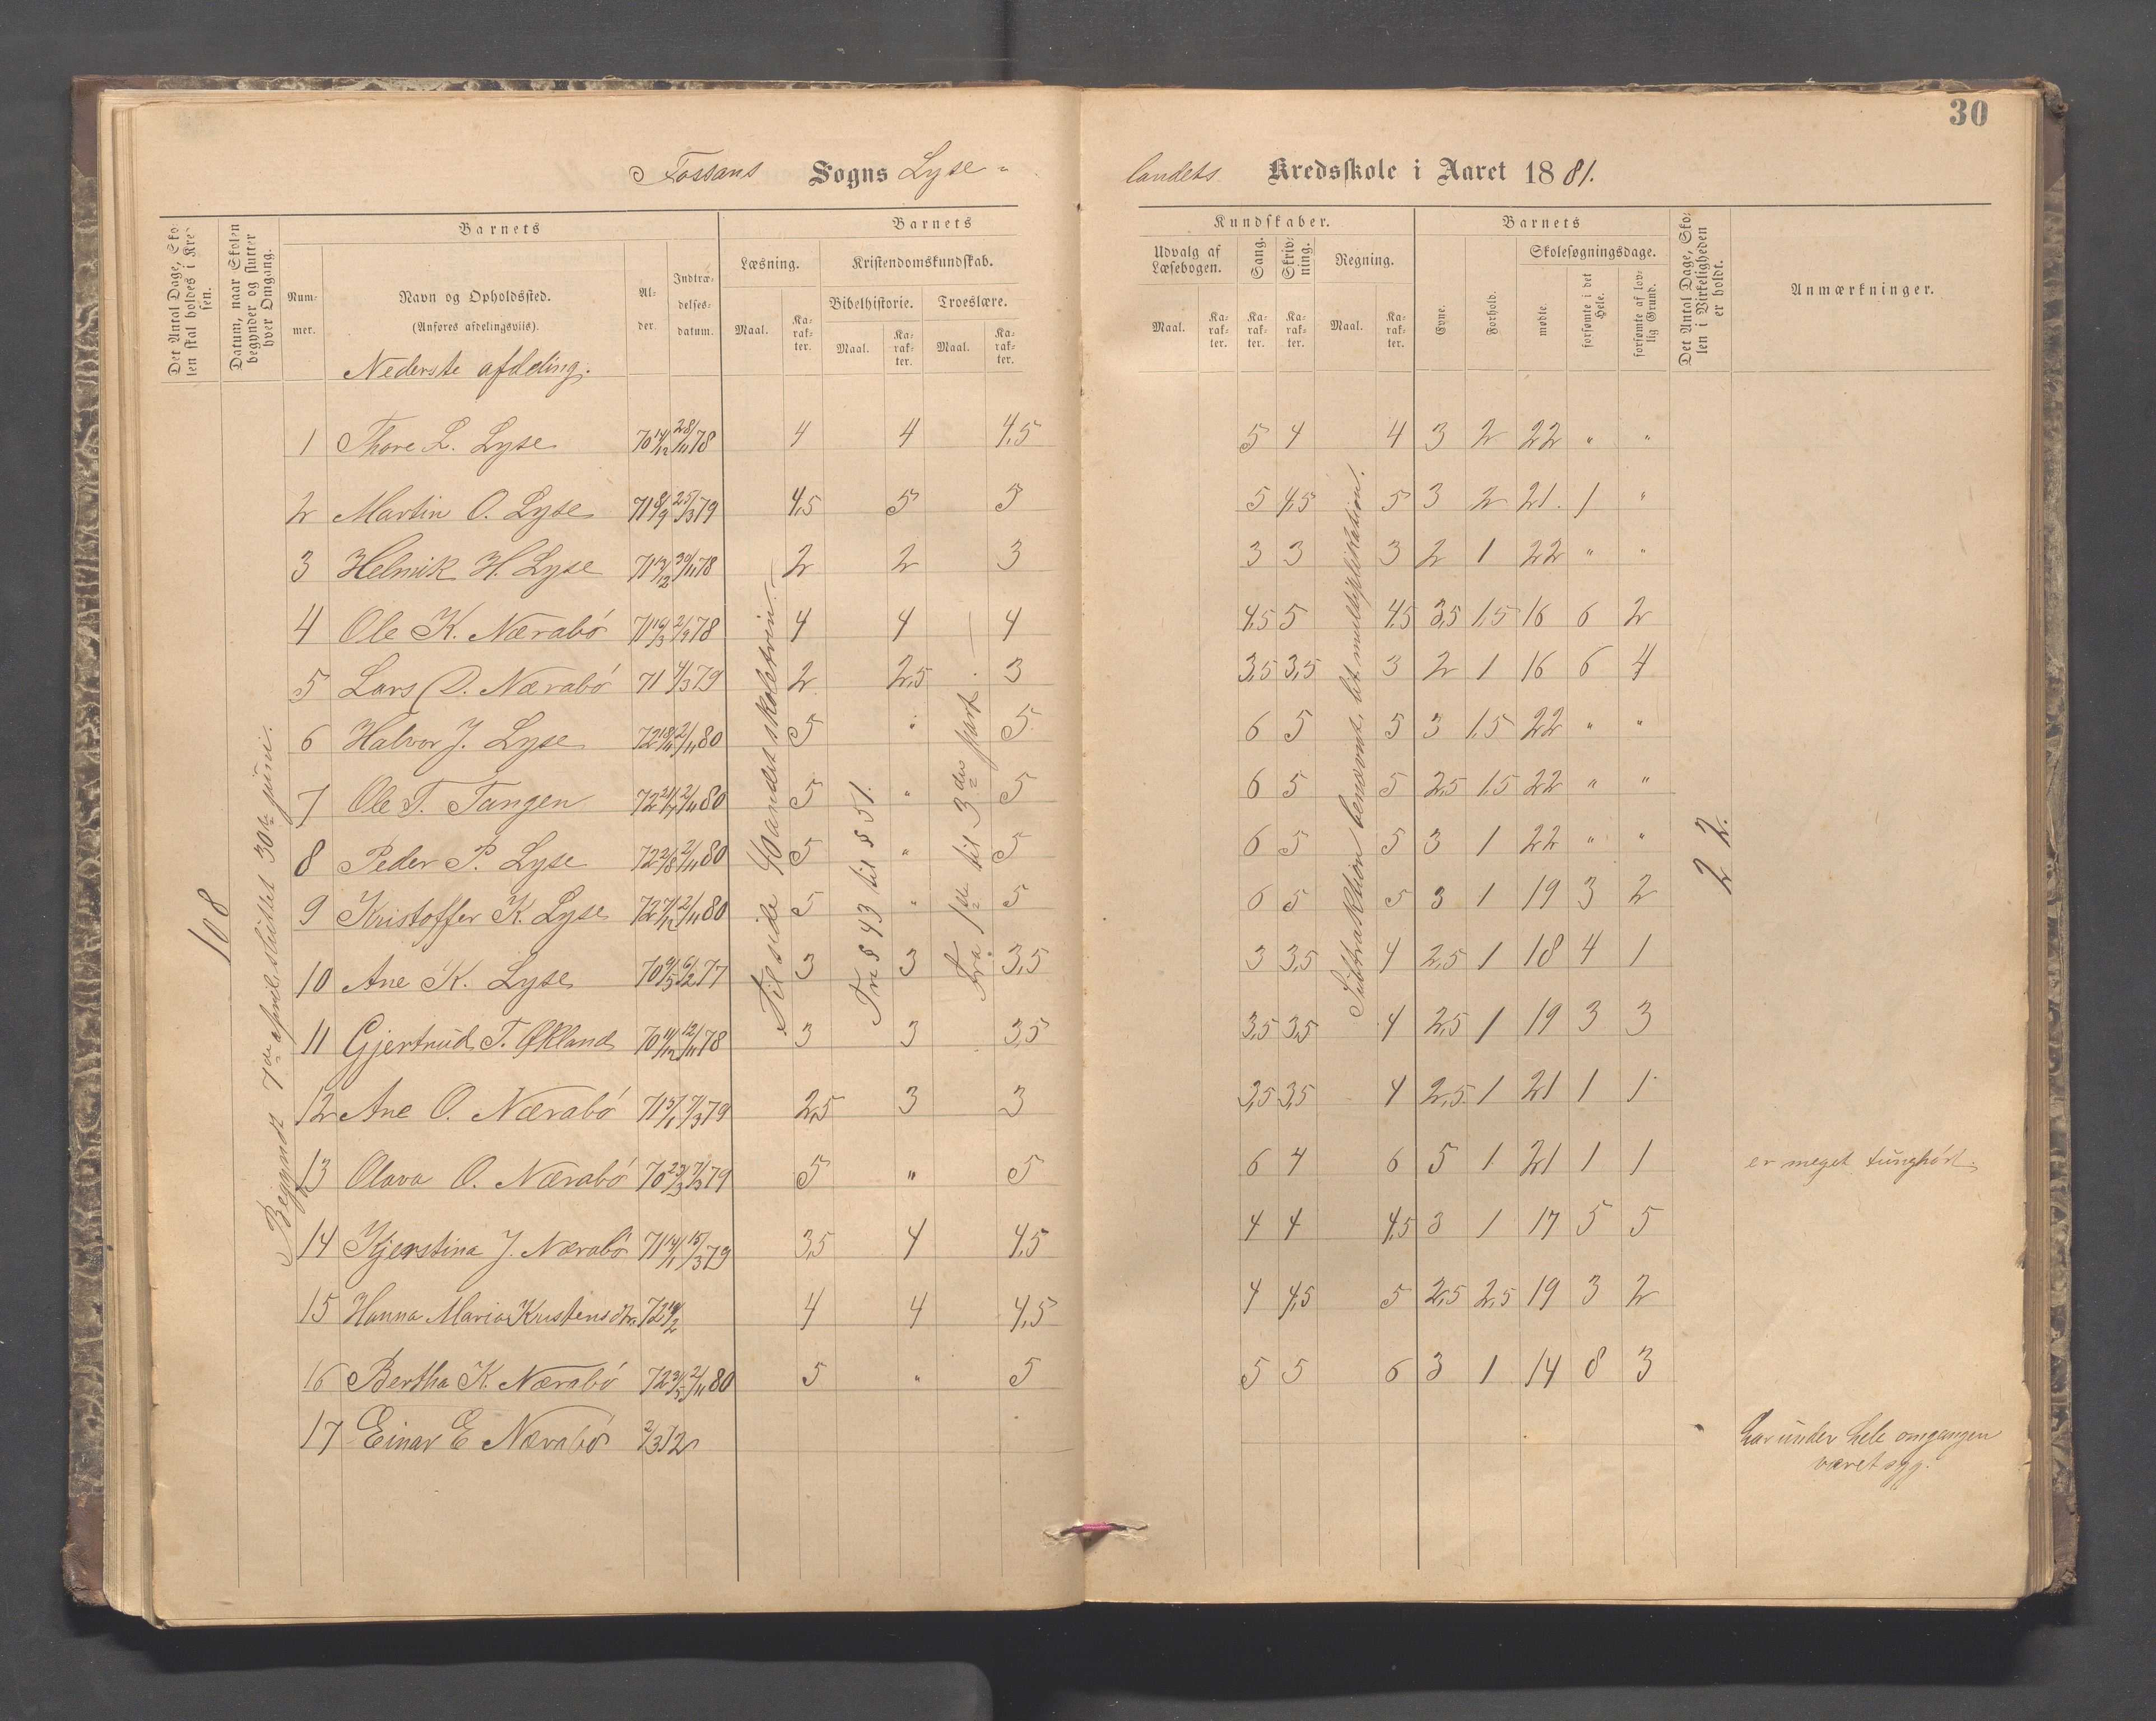 30
Fossans Sogns Lyse-
landets Kredsskole i Aaret 1881.
Det Antal Dage, Skolen skal holdes i Kredsen.
Datum, naar Skolen begynder og slutter hver Omgang.
Barnets
Nummer.
Navn og Opholdssted.
(Anføres afdelingsvis).
Alder.
Indtrædelsesdatum.
Barnets
Læsning.
Kristendomskundskab.
Bibelhistorie.
Troeslære.
Maal.
Karakter.
Maal.
Karakter.
Maal.
Karakter.
Kundskaber.
Udvalg af Læsebogen.
Sang.
Skrivning.
Regning.
Maal.
Karakter.
Karakter.
Karakter.
Maal.
Karakter.
Barnets
Evne.
Forhold.
Skolesøgningsdage.
mødte.
forsømte i det Hele.
forsømte af lovlig Grund.
Det Antal Dage, Skolen i Virkeligheden er holdt.
Anmærkninger.
Nederste afdeling.
108
Begyndt 7de april, sluttet 30te juni.
Til side 40 andet skoletrin.
Fra § 43 til § 51.
Fra 1ste til 3die part
Subtraktion benævnt, lit. multiplikation.
22.
1 Thore L. Lyse 70 14/12 28/11 78 4 4 4,5 5 4 4 3 2 22 " "
2 Martin O. Lyse 71 8/9 25/3 79 4,5 5 5 5 4,5 5 3 2 21. 1 "
3 Helmik H. Lyse 71 12/12 30/11 78 2 2 3 3 3 3 2 1 22 " "
4 Ole K. Nærabø 71 19/3 2/9 78 4 4 4 4,5 5 4,5 3,5 1,5 16 6 2
5 Lars O. Nærabø 71 4/3 79 2 2,5 3 3,5 3,5 3 2 1 16 6 4
6 Halvor J. Lyse 72 18/11 2/11 80 5 " 5 6 5 5 3 1,5 22 " "
7 Ole T. Tangen 72 21/7 2/11 80 5 " 5 6 5 5 2,5 1,5 22 " "
8 Peder P. Lyse 72 2/8 2/11 80 5 " 5 6 5 5 3 1 22 " "
9 Kristoffer K. Lyse 72 7/12 2/11 80 5 " 5 6 5 5 3 1 19 3 2
10 Ane K. Lyse 70 9/5 6/2 77 3 3 3,5 3 3,5 4 2,5 1 18 4 1
11 Gjertrud T. Økland 70 11/12 12/11 78 3 3 3,5 3,5 3,5 4 2,5 1 19 3 3
12 Ane O. Nærabø 71 5/1 7/3 79 2,5 3 3 3,5 3,5 4 2,5 1 21 1 1
13 Olava O. Nærabø 70 23/3 7/3 79 5 " 5 6 4 6 5 1 21 1 1 er meget tunghørt.
14 Kjerstina J. Nærabø 71 14/1 15/3 79 3,5 4 4,5 4 4 4,5 3 1 17 5 5
15 Hanna Maria Kristensdtr. 72 19/2 4 4 4,5 4 4,5 5 2,5 2,5 19 3 2
16 Bertha K. Nærabø 72 31/5 2/11 80 5 " 5 5 5 6 3 1 14 8 3
17 Einar E Nærabø 2/3 72 har under hele omgangen
været syg.